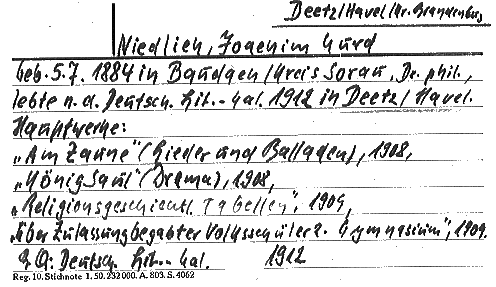 Deetz/Havel/Kr. Brandenburg
Niedlich, Joachim Kurd
geb. 5.7. 1884 in Baudach/Kreis Sorau, Dr. phil.,
lebte n. d. Deutsch. Lit.-Kal. 1912 in Deetz/Havel.
Hauptwerke:
„Am Zaune" (Lieder und Balladen), 1908,
„König Saul" (Drama), 1908,
„Religionsgeschichtl. Tabellen", 1909,
„Über Zulassung begabter Volksschüler z. Gymnasium", 1909.
Qu: Deutsch. Lit.-Kal. 1912
Reg. 10. Stichnote 1. 50. 232 000. A. 803. S. 4062